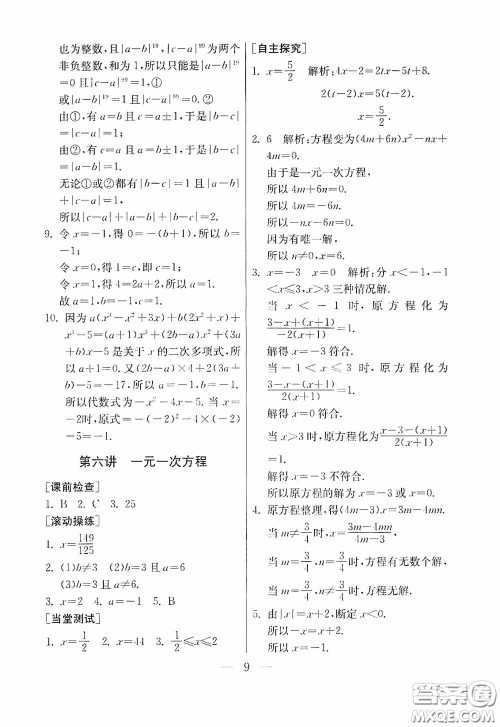 也为整数，且|a−b|¹⁹，|c−a|⁹⁹为两个
非负整数，和为1，所以只能是|a−b|¹⁹
=0且|c−a|⁹⁹=1.①
或|a−b|¹⁹=1且|c−a|⁹⁹=0.②
由①，有a=b且c=a±1，于是|b−c|
=|c−a|=1.
由②，有c=a且a=b±1，于是|b−c|
=|a−b|=1.
无论①或②都有|b−c|=1且|a−b|+
|c−a|=1，
所以|c−a|+|a−b|+|b−c|=2.
9. 令x=−1，得0=−1−b，所以b=
−1；
令x=0，得1=c，即c=1；
令x=1，得4=2a+2，所以a=1.
故a=1，b=−1，c=1.
10. 因为a(x³−x²+3x)+b(2x²+x)+
x³−5=(a+1)x³+(2b−a)x²+(3a
+b)x−5是关于x的二次多项式，所
以a+1=0.又(2b−a)×4+2(3a+
b)−5=−17，所以b=−1，
所以代数式为−x²−4x−5.当x=
−2时，原式=−(−2)²−4×(−2)
−5=−1.
第六讲 一元一次方程
[课前检查]
1. B 2. C 3. 25
[滚动操练]
1. x=149/125
2. (1)b≠3 (2)b=3且a=6
(3)b=3且a≠6.
3. x=2 4. a=−1 5. B
[当堂测试]
1. x=1/2 2. x=44 3. 1/2≤x≤2
[自主探究]
1. x=5/2 解析：4x−2=2tx−5t+8.
2(t−2)x=5(t−2).
x=5/2.
2. 6 解析：方程变为(4m+6n)x²−nx+
4m=0.
由于是一元一次方程，
所以4m+6n=0.
所以−nx−6n=0.
因为有唯一解，
所以n≠0，x=6.
3. x=−3 x=0 解析：分x<−1，−1
<x≤3，x>3三种情况解.
当x<−1时，原方程化为
3−x−(x+1)/−2(x+1)=1.
解得x=−3符合.
当−1<x≤3时，原方程化为
3−x−(x+1)/2(x+1)=1.
解得x=0符合.
当x>3时，原方程化为x−3−(x+1)/2(x+1)
=1.
解得x=−3不符合.
所以原方程的解为x=−3或x=0.
4. 原方程整理，得(4m−3)x=3m−4mn.
当m≠3/4时，x=3m−4mn/4m−3，
当m=3/4，n=3/4时，方程有无数个解，
当m=3/4，n≠3/4时，方程无解.
5. 由|x|=x+2，断定x<0.
所以−x=x+2.
所以x=−1.
— 9 —
答案圈
MXQE.COM